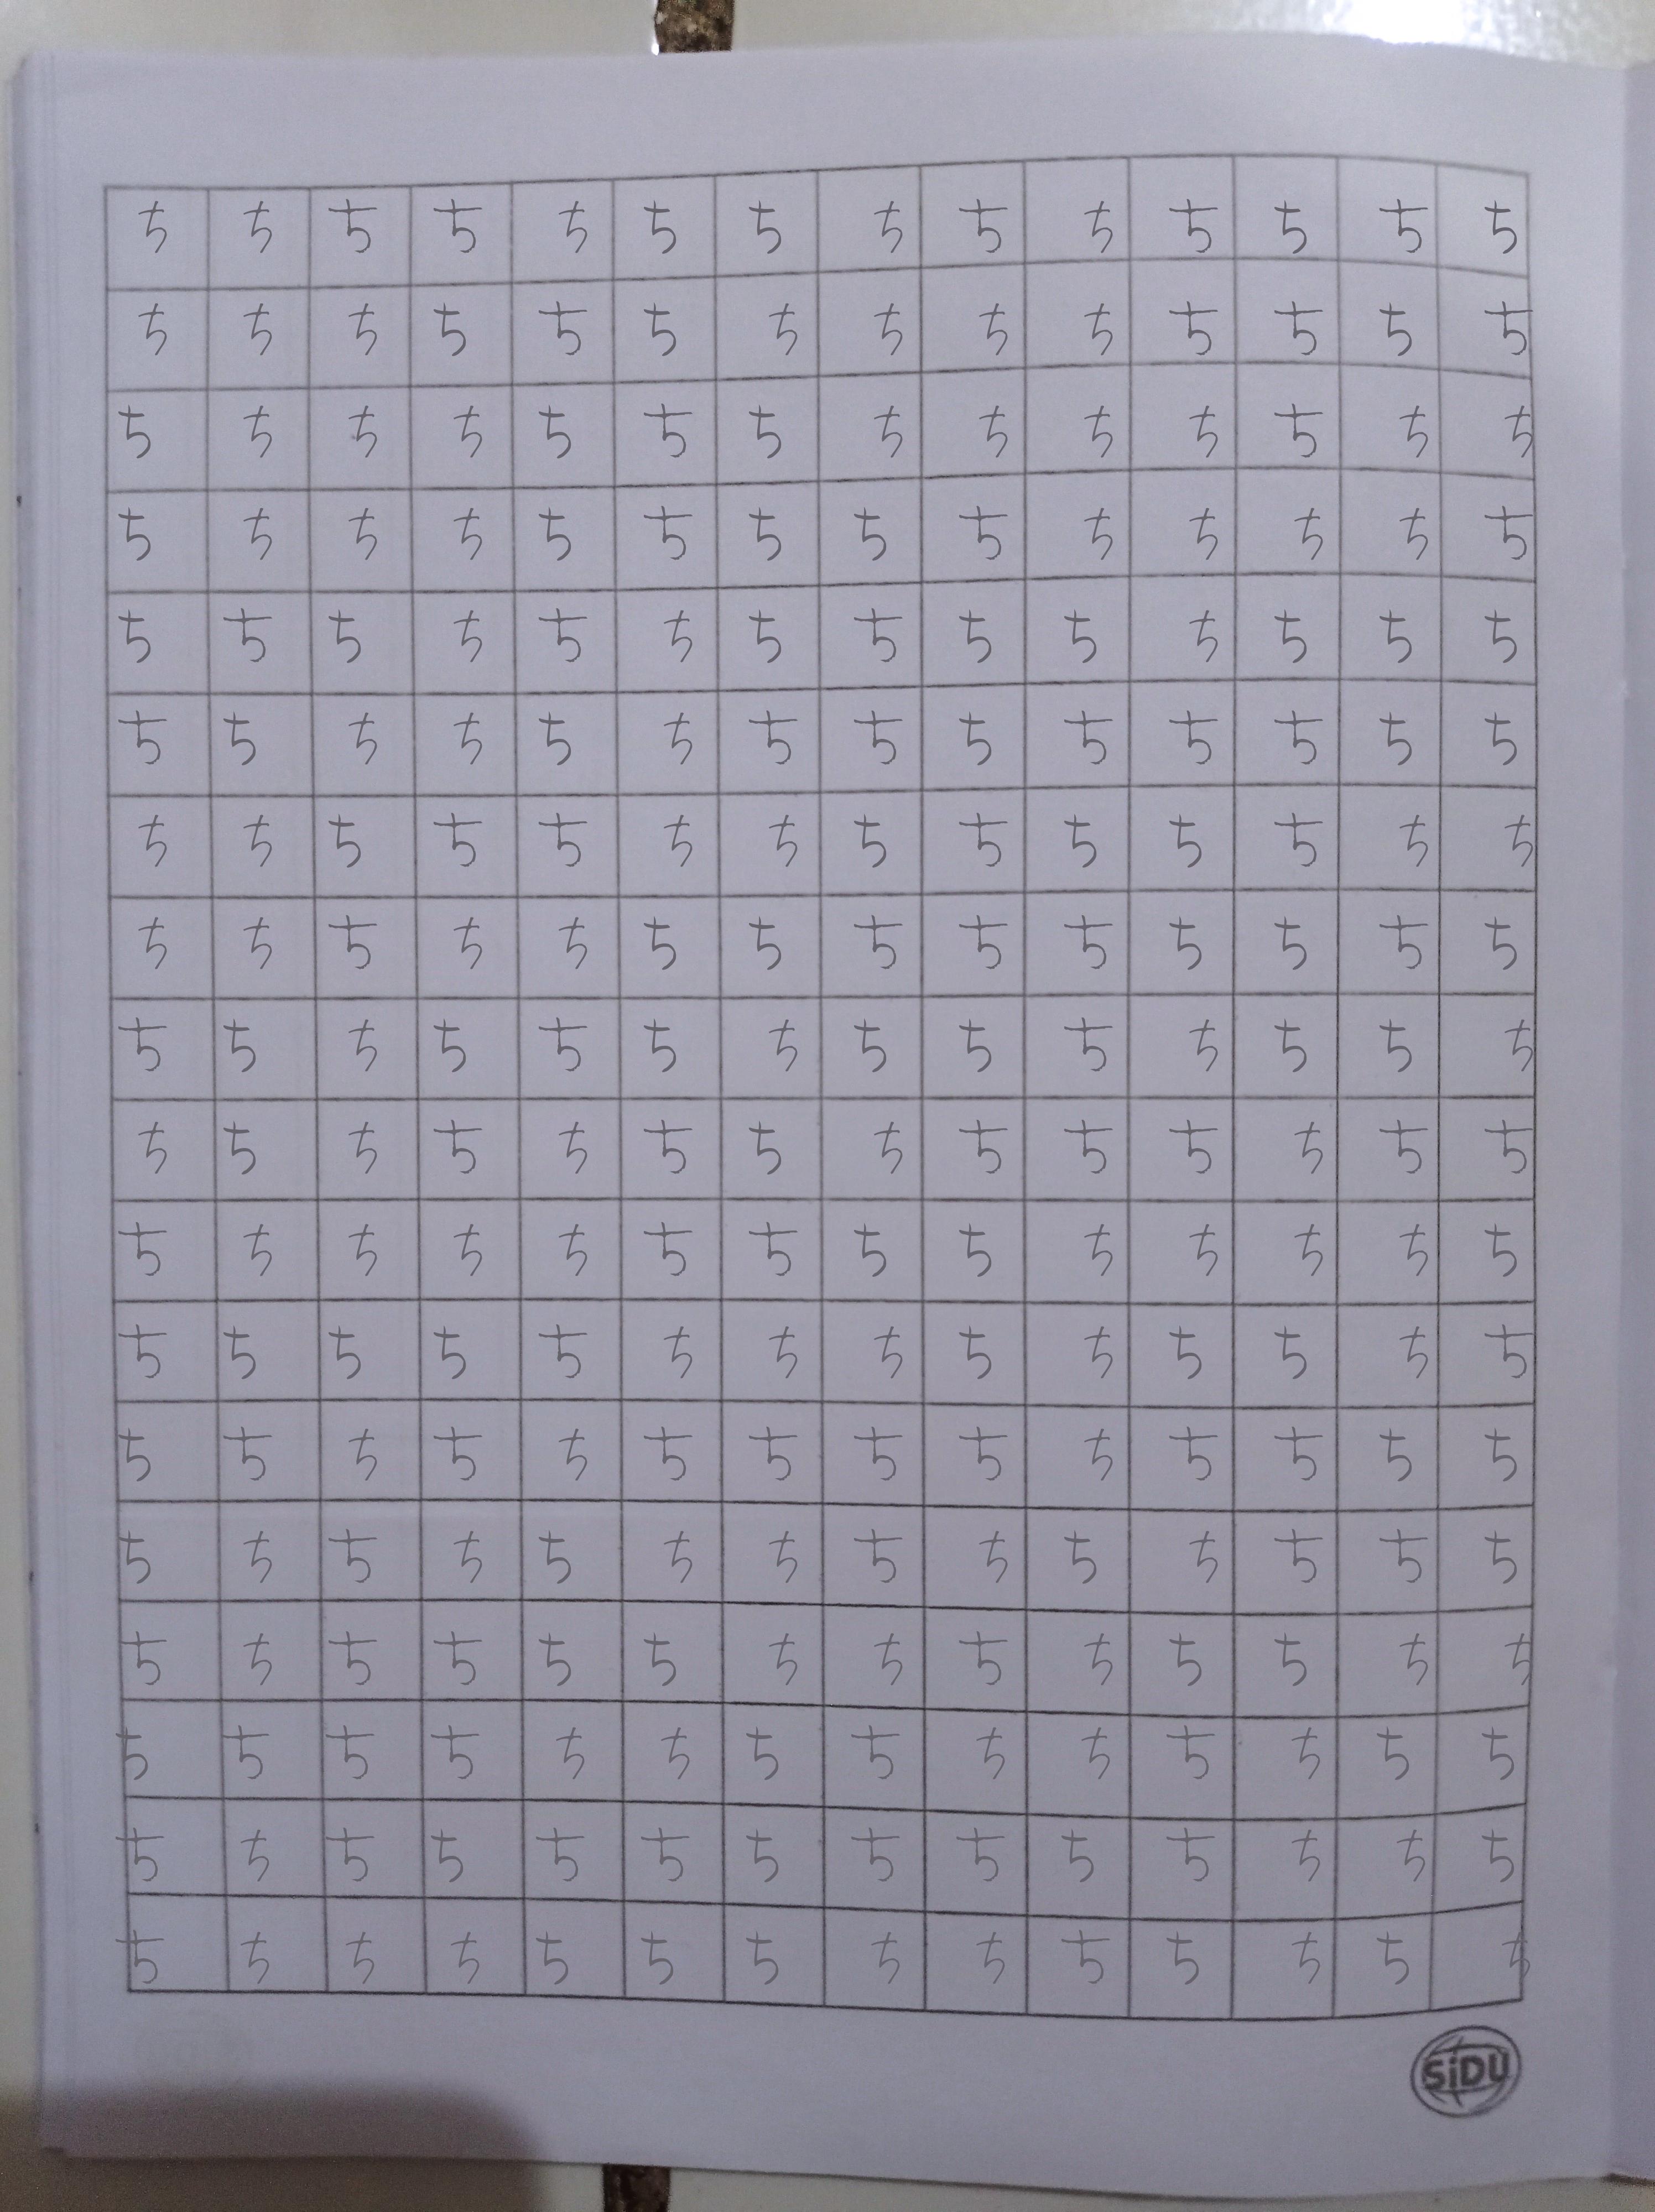 ちちちちちちちちちちちちちち
ちちちちちちちちちちちちちち
ちちちちちちちちちちちちちち
ちちちちちちちちちちちちちち
ちちちちちちちちちちちちちち
ちちちちちちちちちちちちちち
ちちちちちちちちちちちちちち
ちちちちちちちちちちちちちち
ちちちちちちちちちちちちちち
ちちちちちちちちちちちちちち
ちちちちちちちちちちちちちち
ちちちちちちちちちちちちちち
ちちちちちちちちちちちちちち
ちちちちちちちちちちちちちち
ちちちちちちちちちちちちちち
ちちちちちちちちちちちちちち
ちちちちちちちちちちちちちち
ちちちちちちちちちちちちちち
SiDU